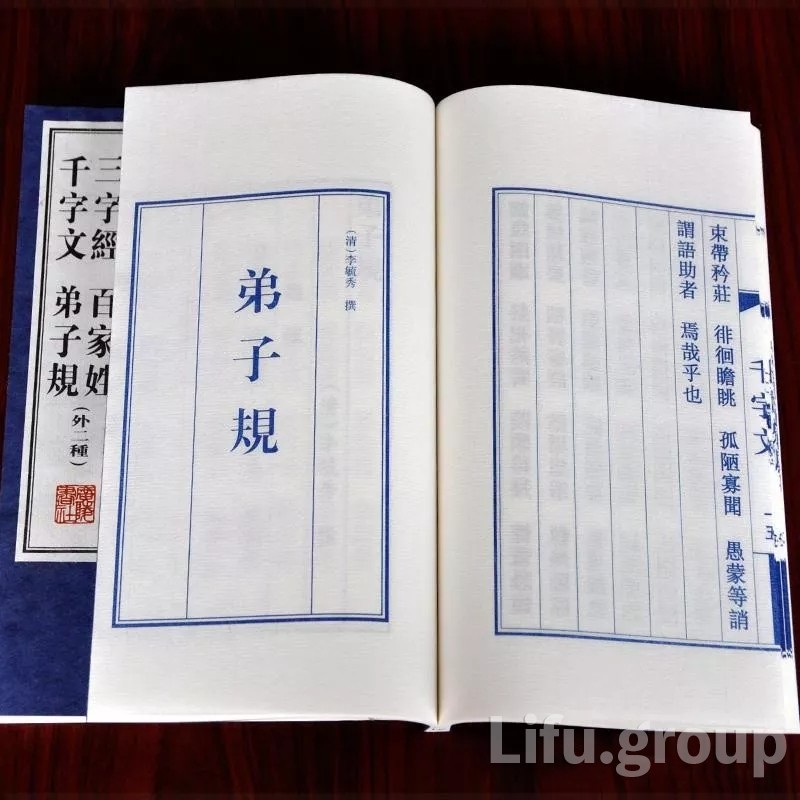 千字文
束帶矜莊 徘徊瞻眺 孤陋寡聞 愚蒙等誚
謂語助者 焉哉乎也
(清)李毓秀 撰
弟子規
三字經 百家姓
千字文 弟子規(外二種)
廣陵書社
Lifu.group